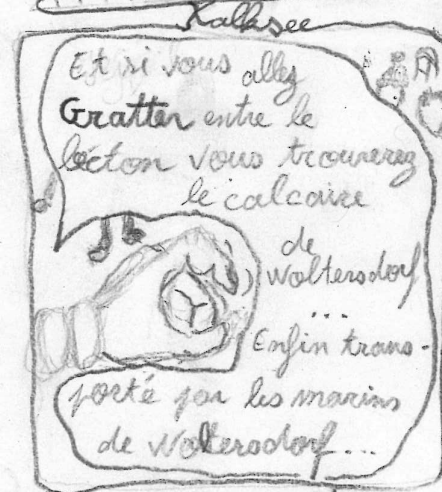 Kalksee
Et si vous allez
Gratter entre le
bécton vous trouverez
le calcaire
de
Woltersdorf
...
Enfin trans-
porté par les marins
de Woltersdorf...